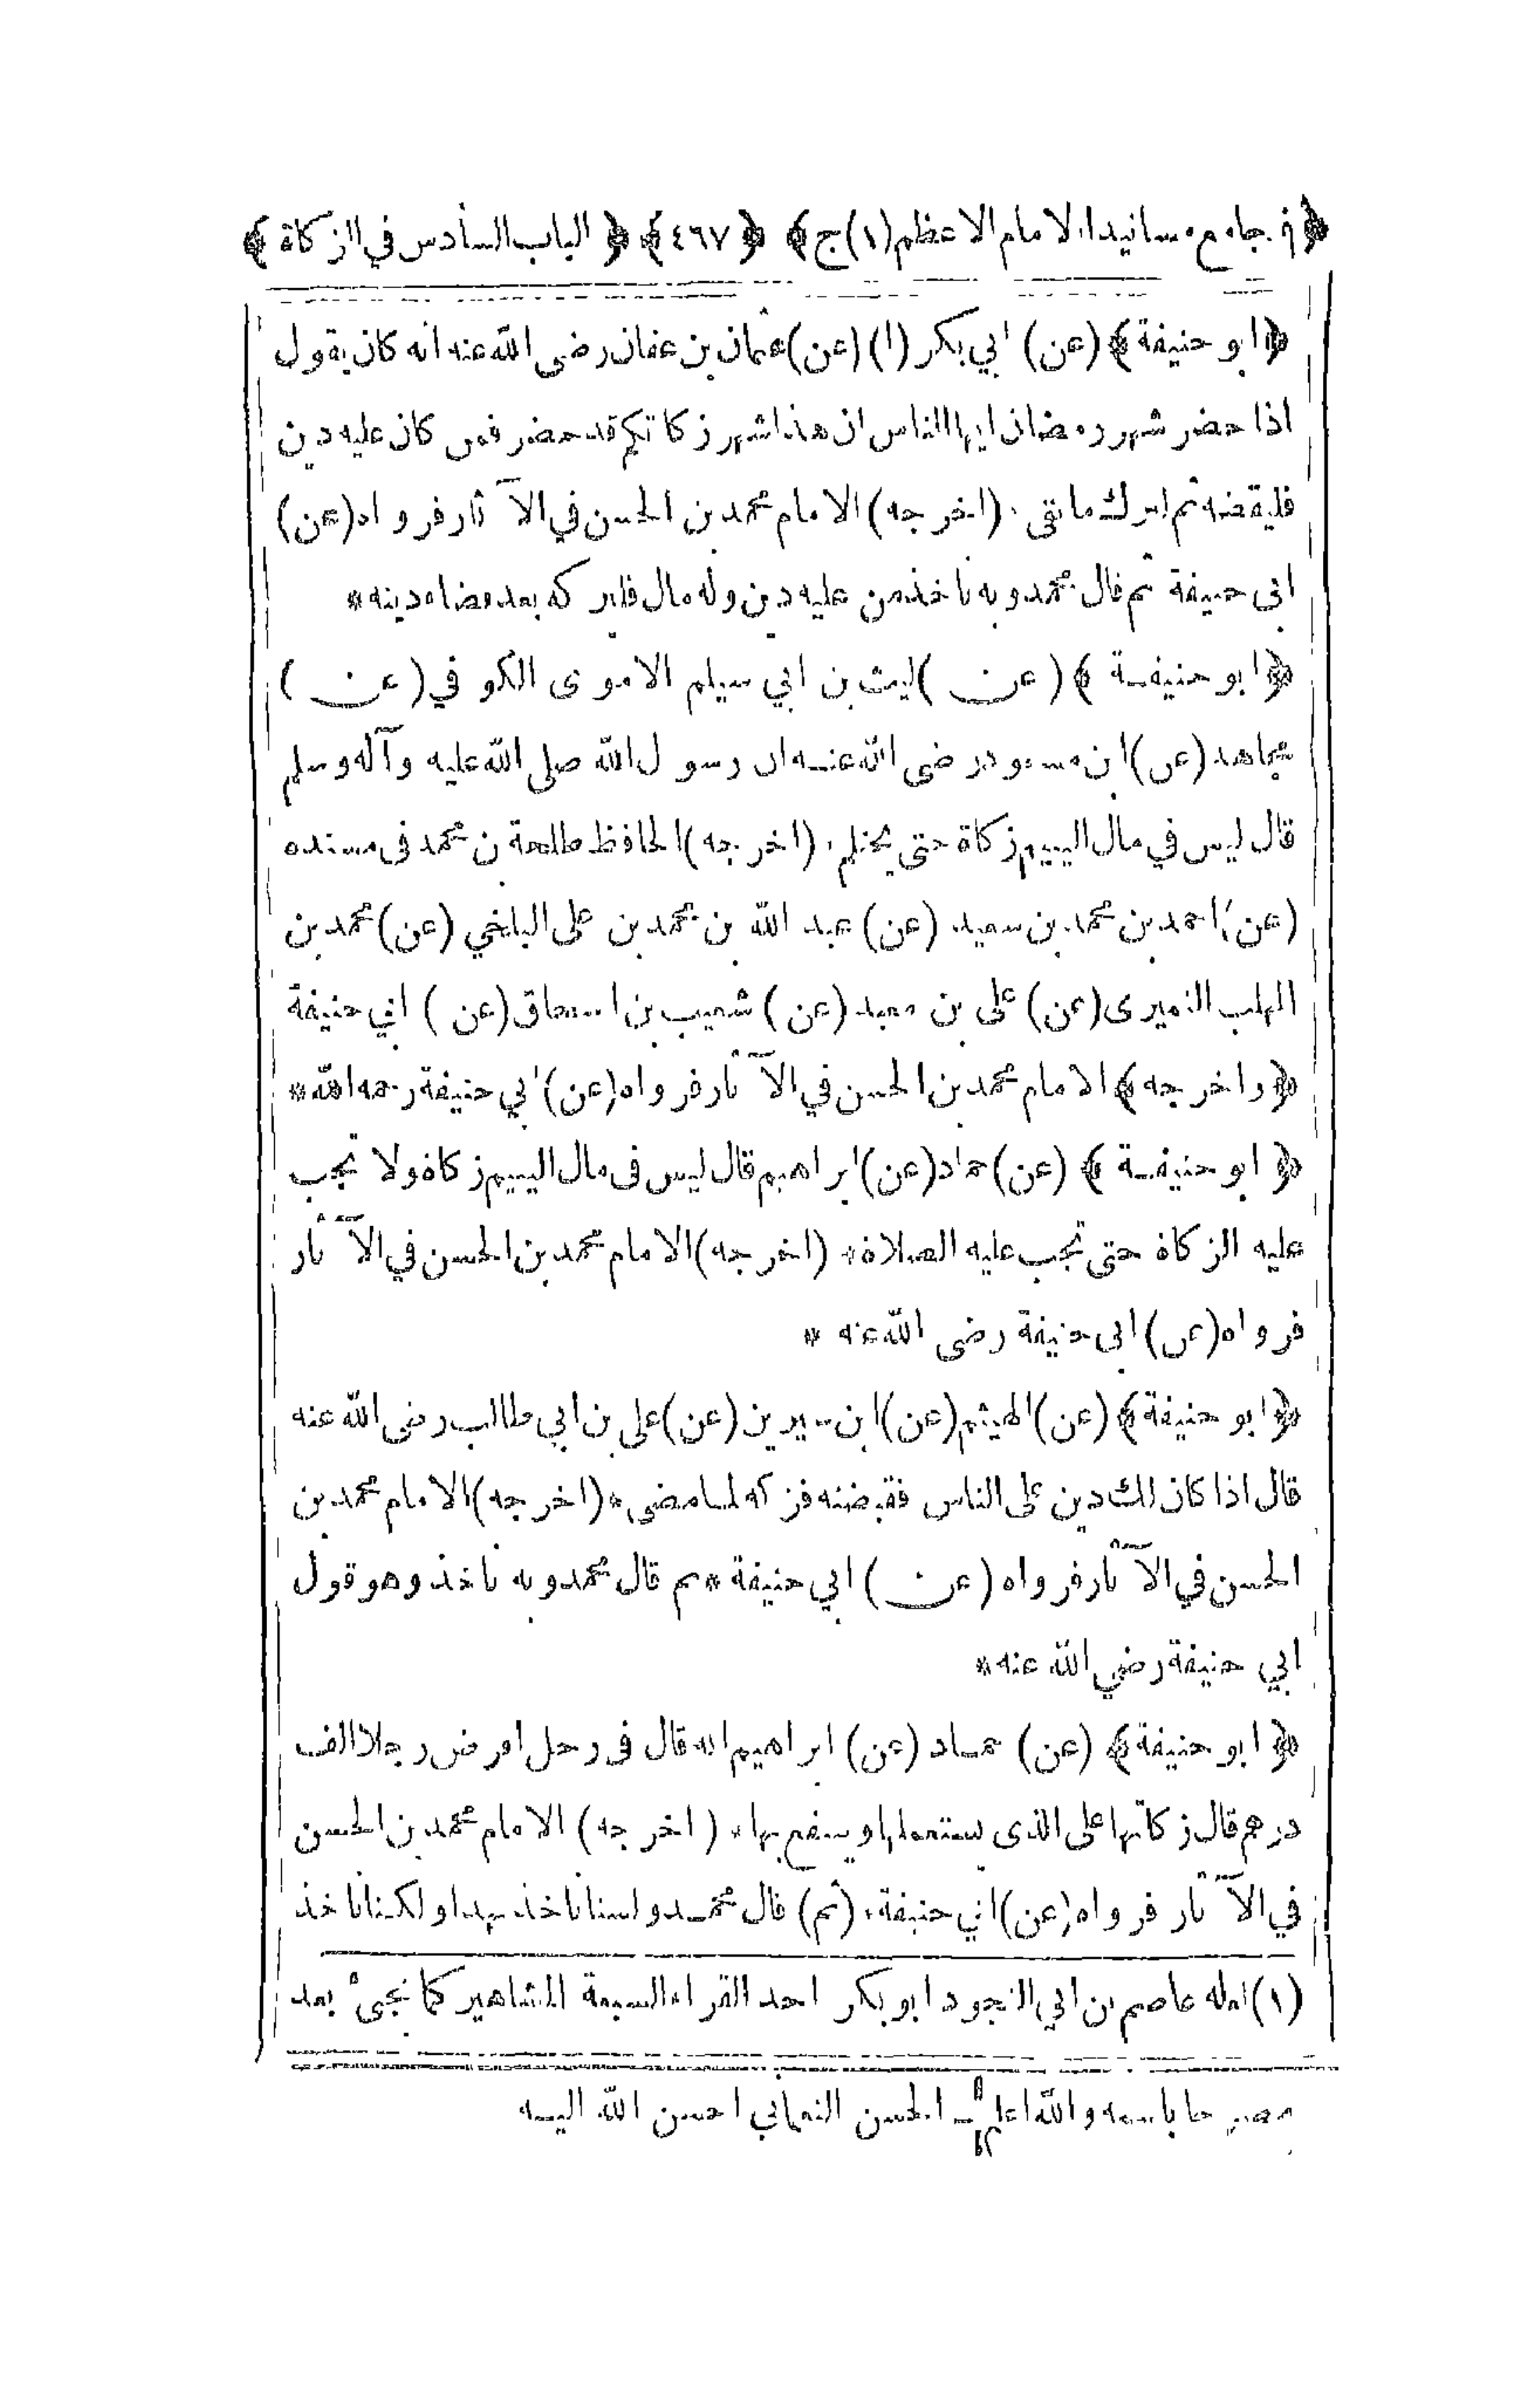 ﴿ جامع مسانيد الامام الاعظم(١)ج﴾ ﴿٤٦٧﴾ ﴿ الباب السادس في الزكاة ﴾
﴿ابو حنيفة﴾ (عن) ابي بكر (١) (عن)عثمان بن عفان رضى الله عنه انه كان يقول
اذا حضر شهر رمضان ايها الناس ان هذا شهر زكاتكم قد حضر فمن كان عليه دين
فليقضه ثم ليزك ما بقى * (اخرجه) الامام محمد بن الحسن في الآثار فرواه (عن)
ابى حنيفة ثم قال محمد وبه ناخذ من عليه دين وله مال فليزكه بعد قضاء دينه*
﴿ابو حنيفة ﴾ (عن) ليث بن ابي سليم الاموى الكوفي (عن)
مجاهد (عن) ابن مسعود رضى الله عنه ان رسول الله صلى الله عليه وآله وسلم
قال ليس في مال اليتيم زكاة حتى يحتلم * (اخرجه) الحافظ طلحة بن محمد فى مسنده
(عن) احمد بن محمد بن سعيد (عن) عبد الله بن محمد بن على البلخي (عن) محمد بن
المهلب النميرى (عن) على بن معبد (عن) شعيب بن اسحاق (عن) ابي حنيفة
﴿واخرجه﴾ الامام محمد بن الحسن في الآثار فرواه (عن) ابي حنيفة رحمه الله*
﴿ ابو حنيفة ﴾ (عن) حماد (عن) ابراهيم قال ليس فى مال اليتيم زكاة ولا تجب
عليه الزكاة حتى تجب عليه الصلاة* (اخرجه) الامام محمد بن الحسن في الآثار
فرواه (عن) ابى حنيفة رضى الله عنه *
﴿ابو حنيفة﴾ (عن) الهيثم (عن) ابن سيرين (عن) على بن ابي طالب رضى الله عنه
قال اذا كان لك دين على الناس فقبضته فزكه لما مضى * (اخرجه) الامام محمد بن
الحسن في الآثار فرواه (عن) ابي حنيفة * ثم قال محمد وبه ناخذ وهو قول
ابي حنيفة رضي الله عنه*
﴿ ابو حنيفة﴾ (عن) حماد (عن) ابراهيم انه قال فى رجل اقرض رجلا الف
درهم قال زكاتها على الذى يستعملها وينتفع بها* (اخرجه) الامام محمد بن الحسن
في الآثار فرواه (عن) ابي حنيفة* (ثم) قال محمد ولسنا ناخذ بهذا ولكنا ناخذ
(١) لعله عاصم بن ابي النجود ابو بكر احد القراء السبعة المشاهير كما يجئ بعد
مصرحا باسمه والله اعلم الحسن النعماني احسن الله اليه